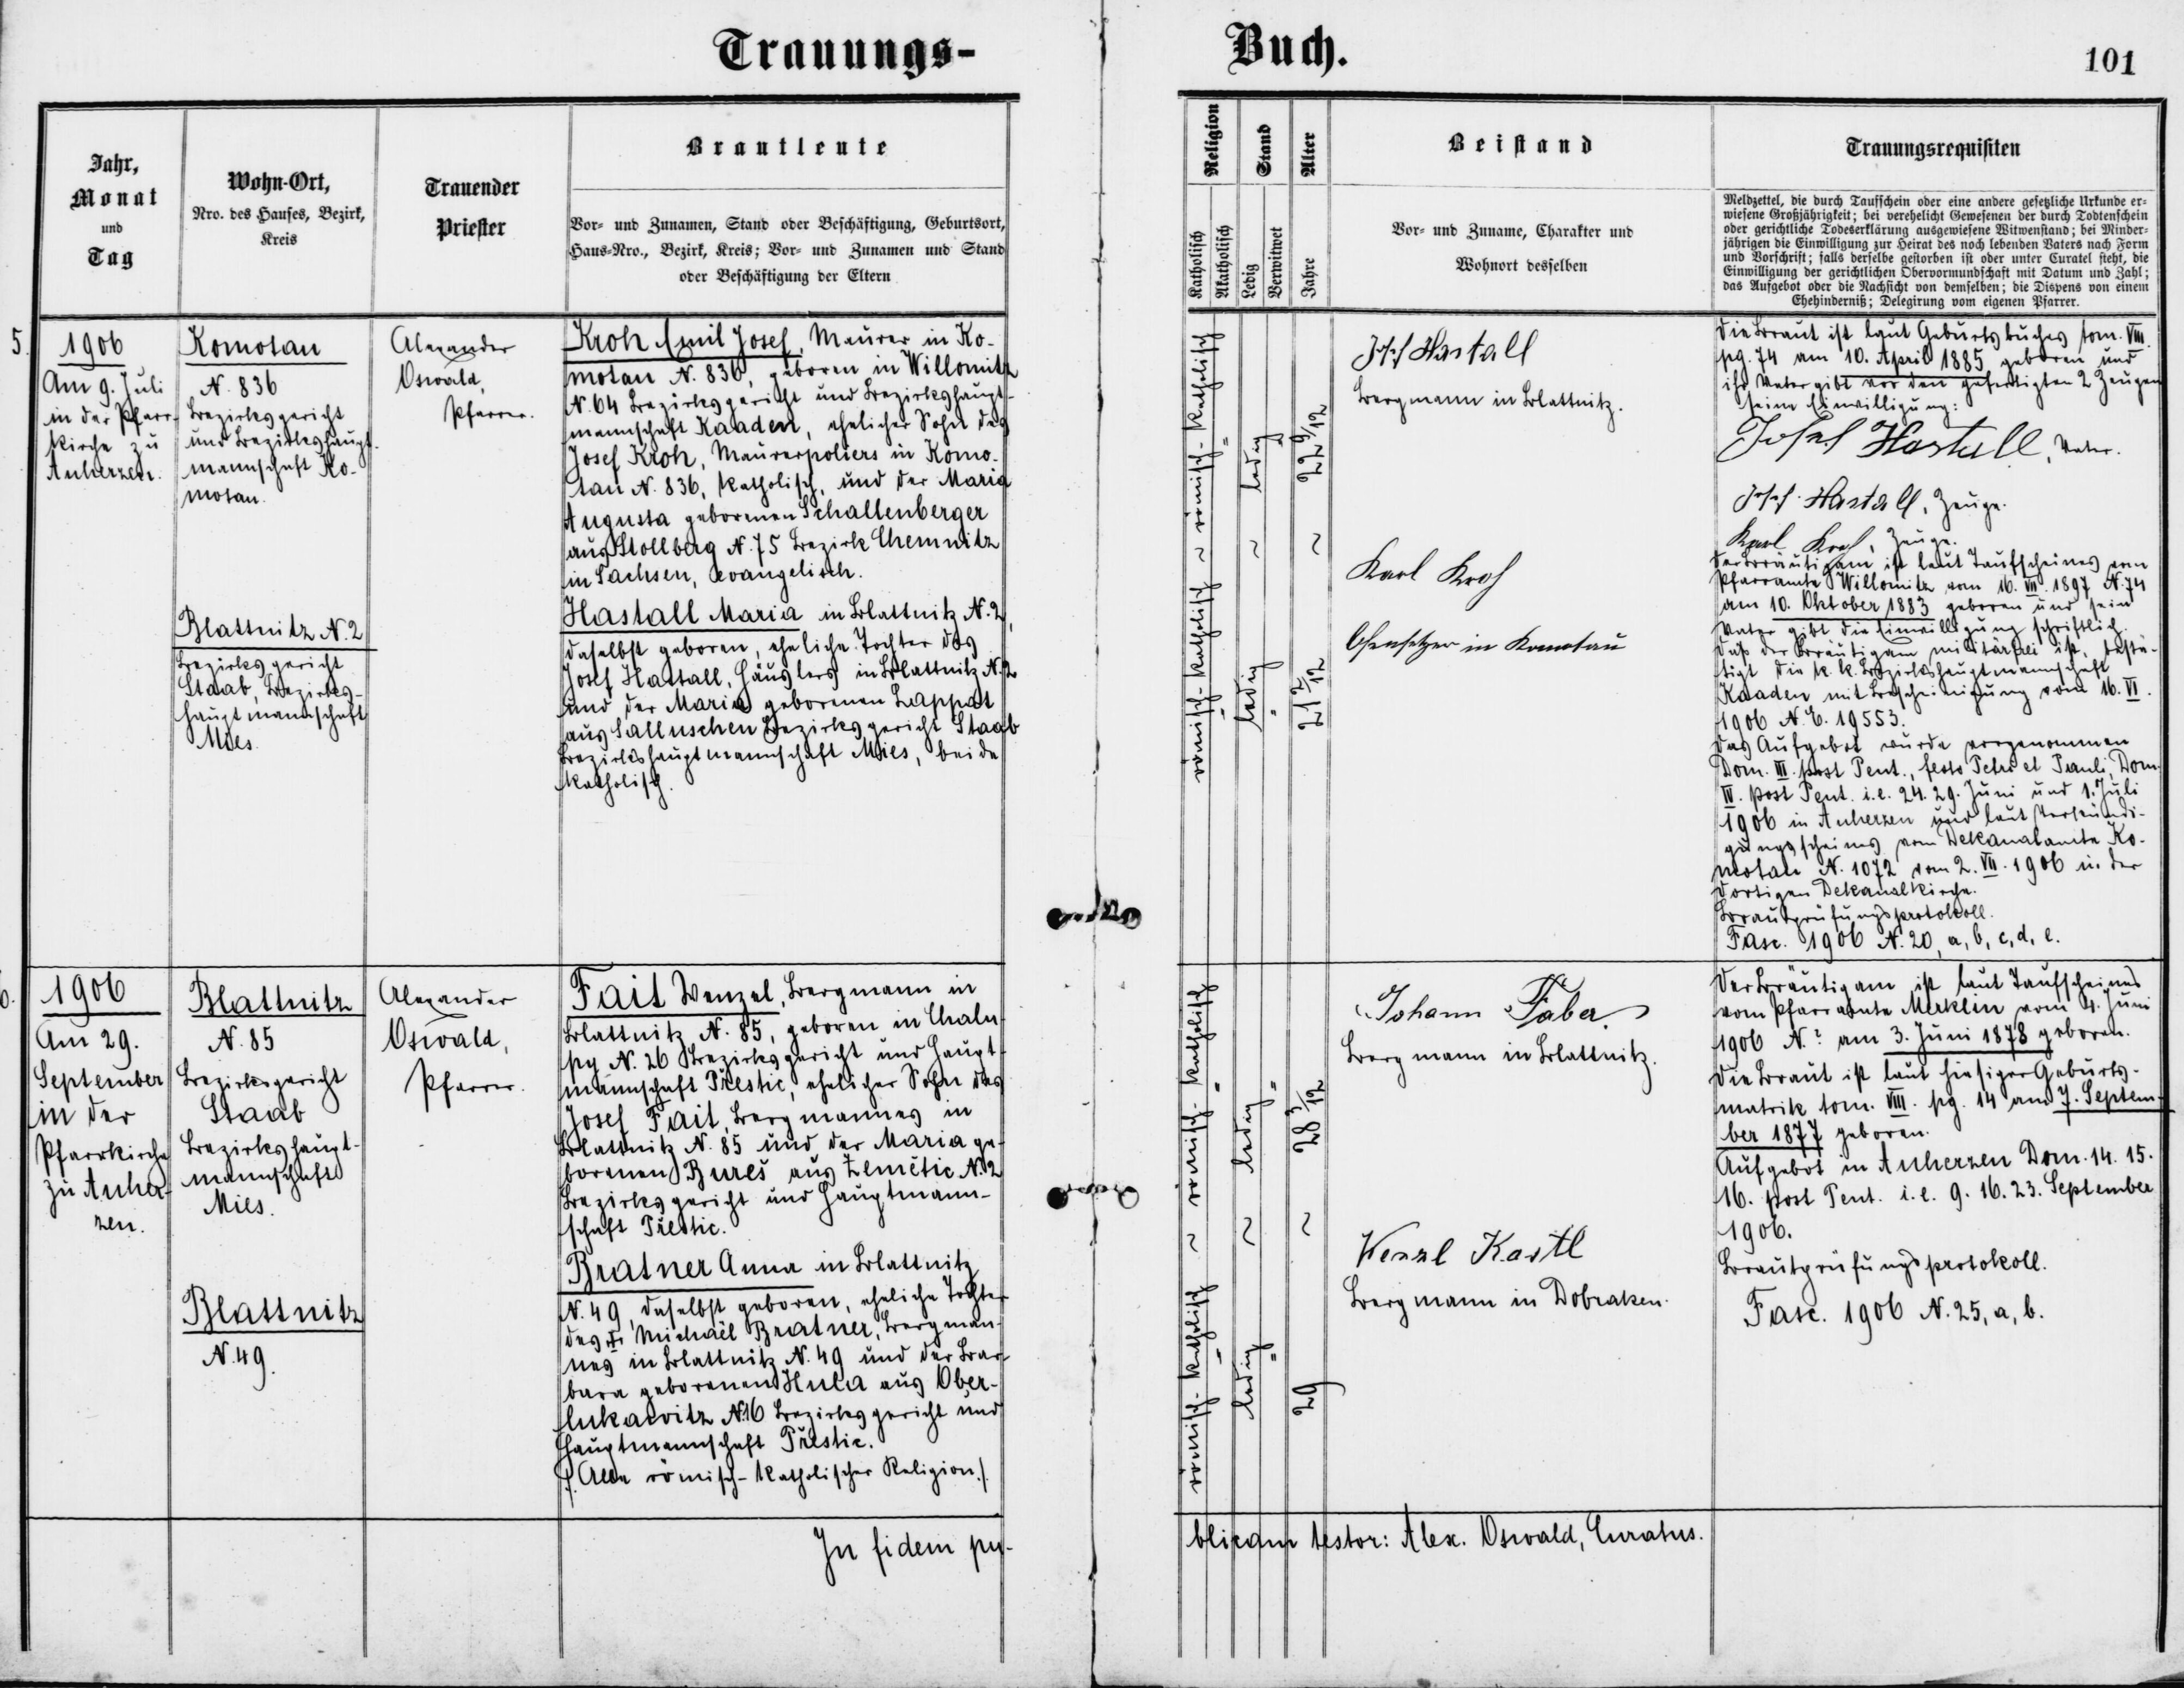 Trauungs-
Buch.
101
Jahr,
Monat
und
Tag
Wohn-Ort,
Nro. des Hauses, Bezirk,
Kreis
Trauender
Priester
Brautleute
Vor- und Zunamen, Stand oder Beschäftigung, Geburtsort,
Haus-Nro., Bezirk, Kreis; Vor- und Zunamen und Stand
oder Beschäftigung der Eltern
Religion
Katholisch
Akatholisch
Stand
Ledig
Verwitwet
Alter
Jahre
Beistand
Vor- und Zuname, Charakter und
Wohnort desselben
Trauungsrequisiten
Meldzettel, die durch Taufschein oder eine andere gesetzliche Urkunde er-
wiesene Großjährigkeit; bei verehelicht Gewesenen der durch Todtenschein
oder gerichtliche Todeserklärung ausgewiesene Witwenstand; bei Minder-
jährigen die Einwilligung zur Heirat des noch lebenden Vaters nach Form
und Vorschrift; falls derselbe gestorben ist oder unter Curatel steht, die
Einwilligung der gerichtlichen Obervormundschaft mit Datum und Zahl;
das Aufgebot oder die Nachsicht von demselben; die Dispens von einem
Ehehinderniß; Delegirung vom eigenen Pfarrer.
5.
1906
Am 9. Juli
in der Pfarr-
kirche zu
Anherzen.
Komotau
N. 836
Bezirksgericht
und Bezirkshaupt-
mannschaft Ko-
motau.
Blattnitz N. 2
Bezirksgericht
Staab, Bezirks-
hauptmannschaft
Mies.
Alexander
Oswald,
Pfarrer.
Kroh Emil Josef, Maurer in Ko-
motau N. 836, geboren in Willomitz
N. 64 Bezirksgericht und Bezirkshaupt-
mannschaft Kaaden, ehelicher Sohn des
Josef Kroh, Maurerpoliers in Komo-
tau N. 836, katholisch, und der Maria
Augusta geborenen Schallenberger
aus Stollberg N. 75 Bezirk Chemnitz
in Sachsen, evangelisch.
Hastall Maria in Blattnitz N. 2,
daselbst geboren, eheliche Tochter des
Josef Hastall, Häuslers in Blattnitz N. 2
und der Maria geborenen Lappat
aus Salluschen Bezirksgericht Staab
Bezirkshauptmannschaft Mies, beide
katholisch.
römisch-katholisch ~ römisch-katholisch
ledig ~ ledig
22 9/12
~
21 2/12
Josef Hastall
Bergmann in Blattnitz.
Karl Kroh
Ofensetzer in Komotau
Die Braut ist laut Geburtsbuches tom. VIII.
pg. 74 am 10. April 1885 geboren und
ihr Vater gibt vor den gefertigten 2 Zeugen
seine Einwilligung:
Josef Hastall, Vater.
Josef Hastall, Zeuge.
Karl Kroh, Zeuge.
Der Bräutigam ist laut Taufscheines vom
Pfarramte Willomitz vom 16. VII. 1897 N. 74
am 10. Oktober 1883 geboren und sein
Vater gibt die Einwilligung schriftlich.
Daß der Bräutigam militärfrei ist, bestä-
tigt die k. k. Bezirkshauptmannschaft
Kaaden mit Bescheinigung vom 16. VI.
1906 N. E. 19553.
Das Aufgebot wurde vorgenommen
Dom. III. post Pent., festo Petri et Pauli, Dom.
IV. post Pent. i.e. 24. 29. Juni und 1. Juli
1906 in Anherzen und laut Verkündi-
gungsscheines vom Dekanalamte Ko-
motau N. 1072 vom 2. VII. 1906 in der
dortigen Dekanalkirche.
Brautprüfungsprotokoll.
Fasc. 1906 N. 20, a, b, c, d, e.
6.
1906
Am 29.
September
in der
Pfarrkirche
zu Anher-
zen.
Blattnitz
N. 85
Bezirksgericht
Staab
Bezirkshaupt-
mannschaft
Mies.
Blattnitz
N. 49.
Alexander
Oswald,
Pfarrer.
Fait Wenzel, Bergmann in
Blattnitz N. 85, geboren in Chalu-
py N. 26 Bezirksgericht und Haupt-
mannschaft Přestic, ehelicher Sohn des
Josef Fait, Bergmannes in
Blattnitz N. 85 und der Maria ge-
borenen Bureš aus Zemětic N. 2
Bezirksgericht und Hauptmann-
schaft Přestic.
Bratner Anna in Blattnitz
N. 49, daselbst geboren, eheliche Tochter
des Michaël Bratner, Bergman-
nes in Blattnitz N. 49 und der Bar-
bara geborenen Hula aus Ober-
lukawitz N. 16 Bezirksgericht und
Hauptmannschaft Přestic.
(Alle römisch-katholischer Religion.)
römisch-katholisch ~ römisch-katholisch
ledig ~ ledig
28 3/12
~
29
Johann Faber
Bergmann in Blattnitz.
Wenzl Kastl
Bergmann in Dobraken.
Der Bräutigam ist laut Taufscheines
vom Pfarramte Merklin vom 4. Juni
1906 N. ? am 3. Juni 1878 geboren.
Die Braut ist laut hiesiger Geburts-
matrik tom. VIII. pg. 14 am 7. Septem-
ber 1877 geboren.
Aufgebot in Anherzen Dom. 14. 15.
16. post Pent. i.e. 9. 16. 23. September
1906.
Brautprüfungsprotokoll.
Fasc. 1906 N. 25, a, b.
In fidem pu-
blicam testor: Alex. Oswald, Curatus.